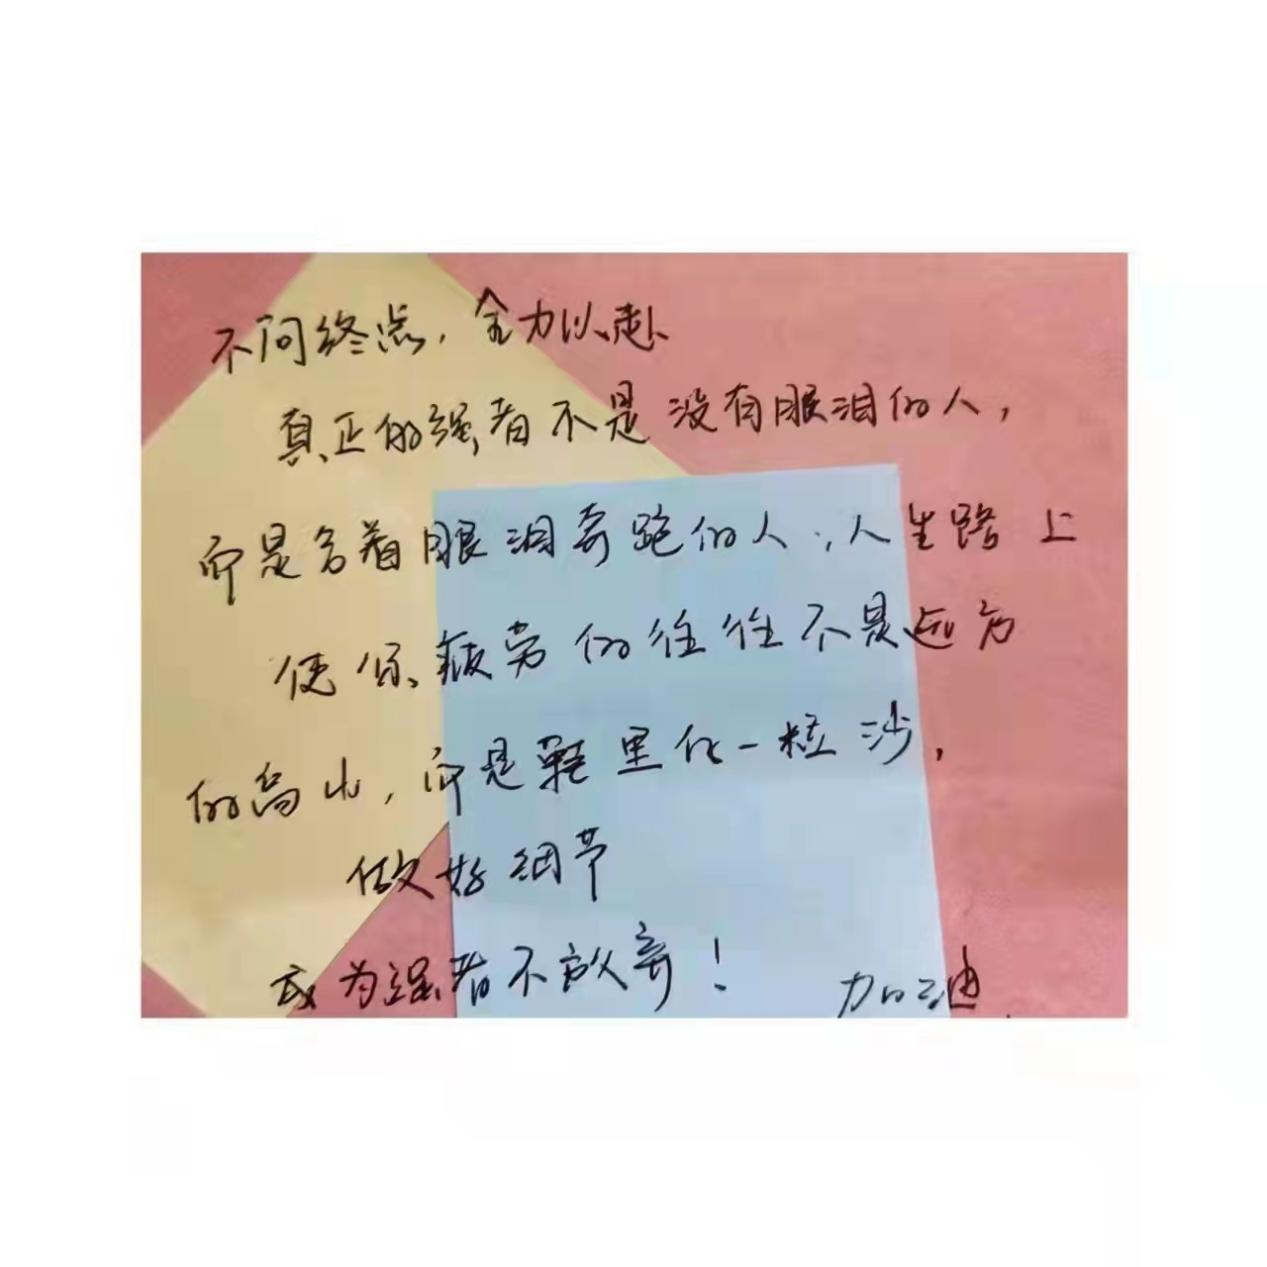 不问终点，全力以赴
真正的强者不是没有眼泪的人，
而是含着眼泪奔跑的人，人生路上
使你疲劳的往往不是远方
的高山，而是鞋里的一粒沙，
做好细节
成为强者不放弃！ 加油